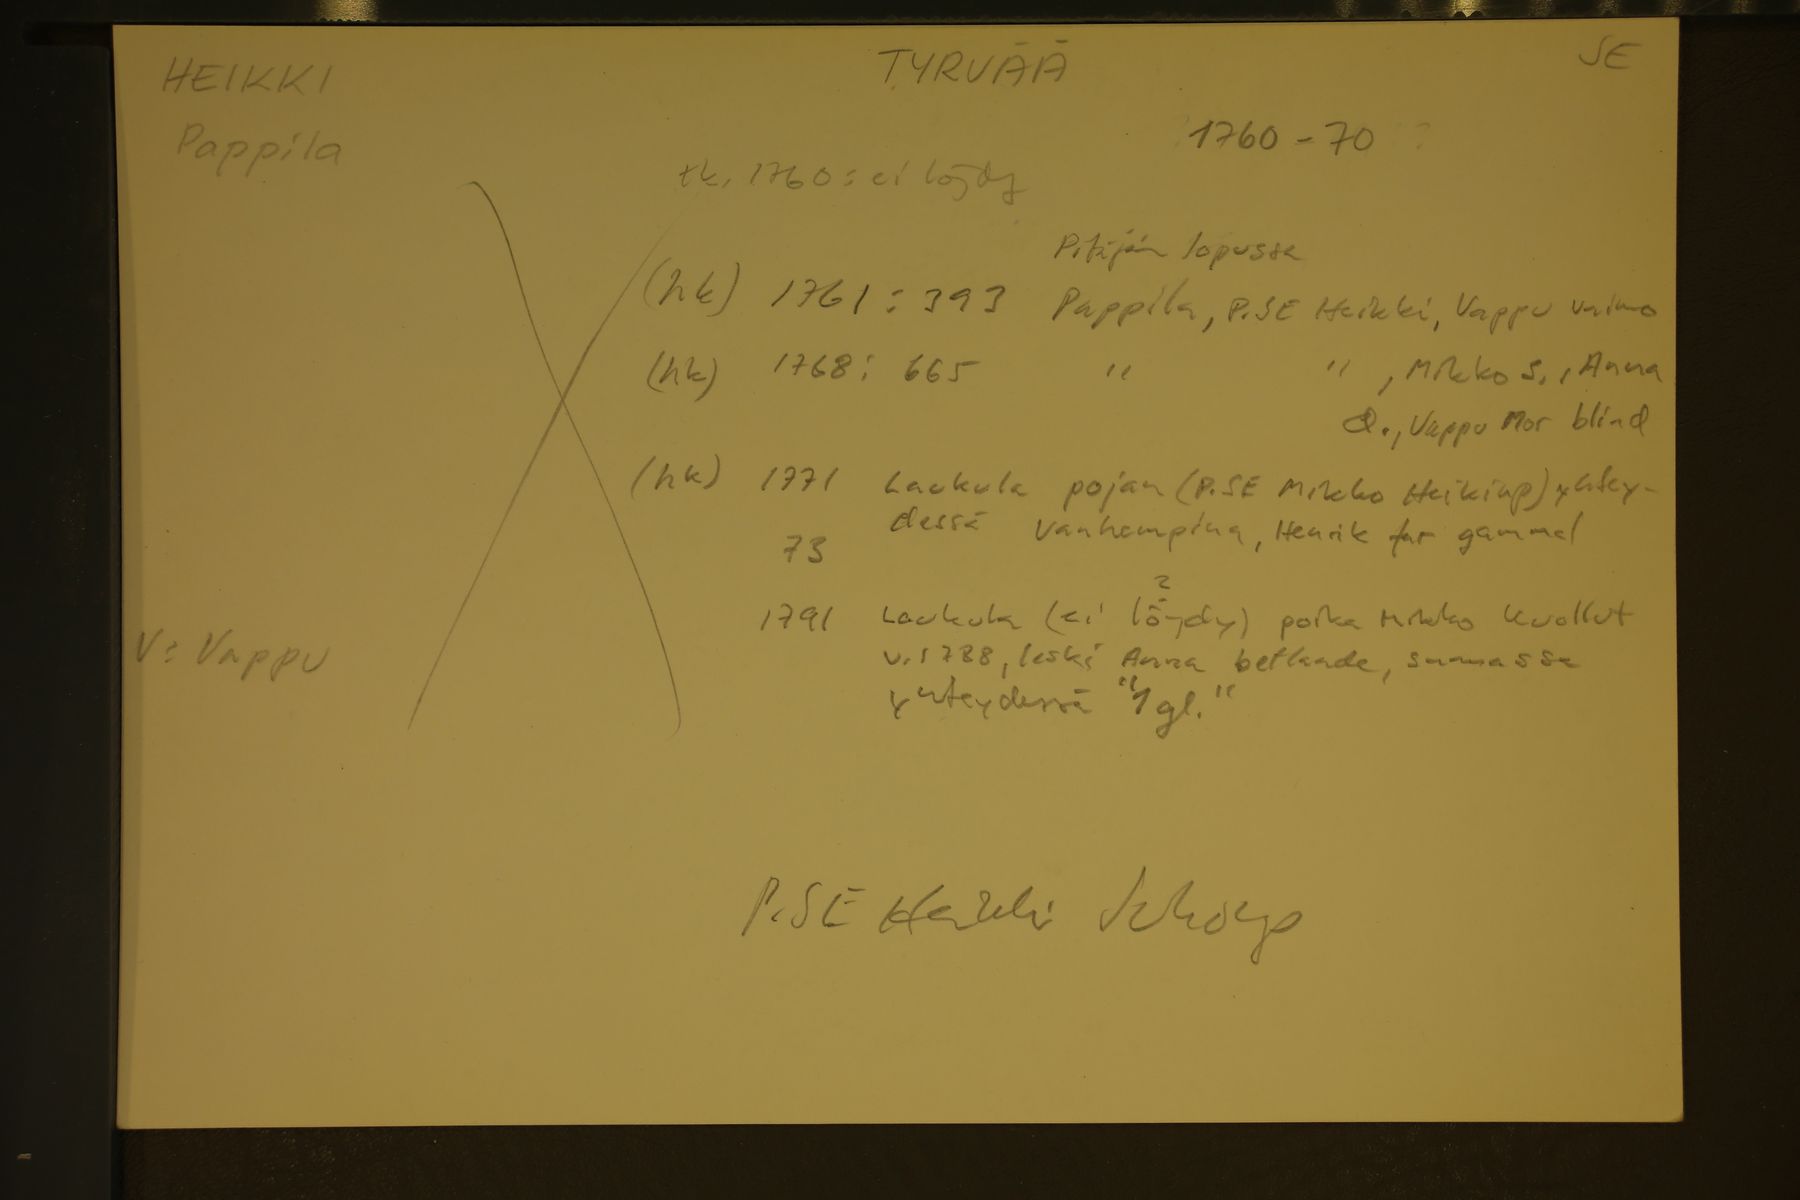 HEIKKI
TYRVÄÄ
SE
Pappila
?1760-70?
tk. 1760: ei löydy
Pitäjän lopussa
(hk) 1761: 393 Pappila, P.SE Heikki, Vappu vaimo
(hk) 1768: 665 " " , Mikko s., Anna
d., Vappu Mor blind
(hk) 1771 Laukula pojan (P.SE Mikko Heikinp) yhtey-
dessä vanhempina, Henrik far gammal
73
?
1791 Laukula (ei löydy) poika Mikko kuollut
v. 1788, leski Anna betlande, samassa
yhteydessä "1 gl."
V: Vappu
P.SE Heikki